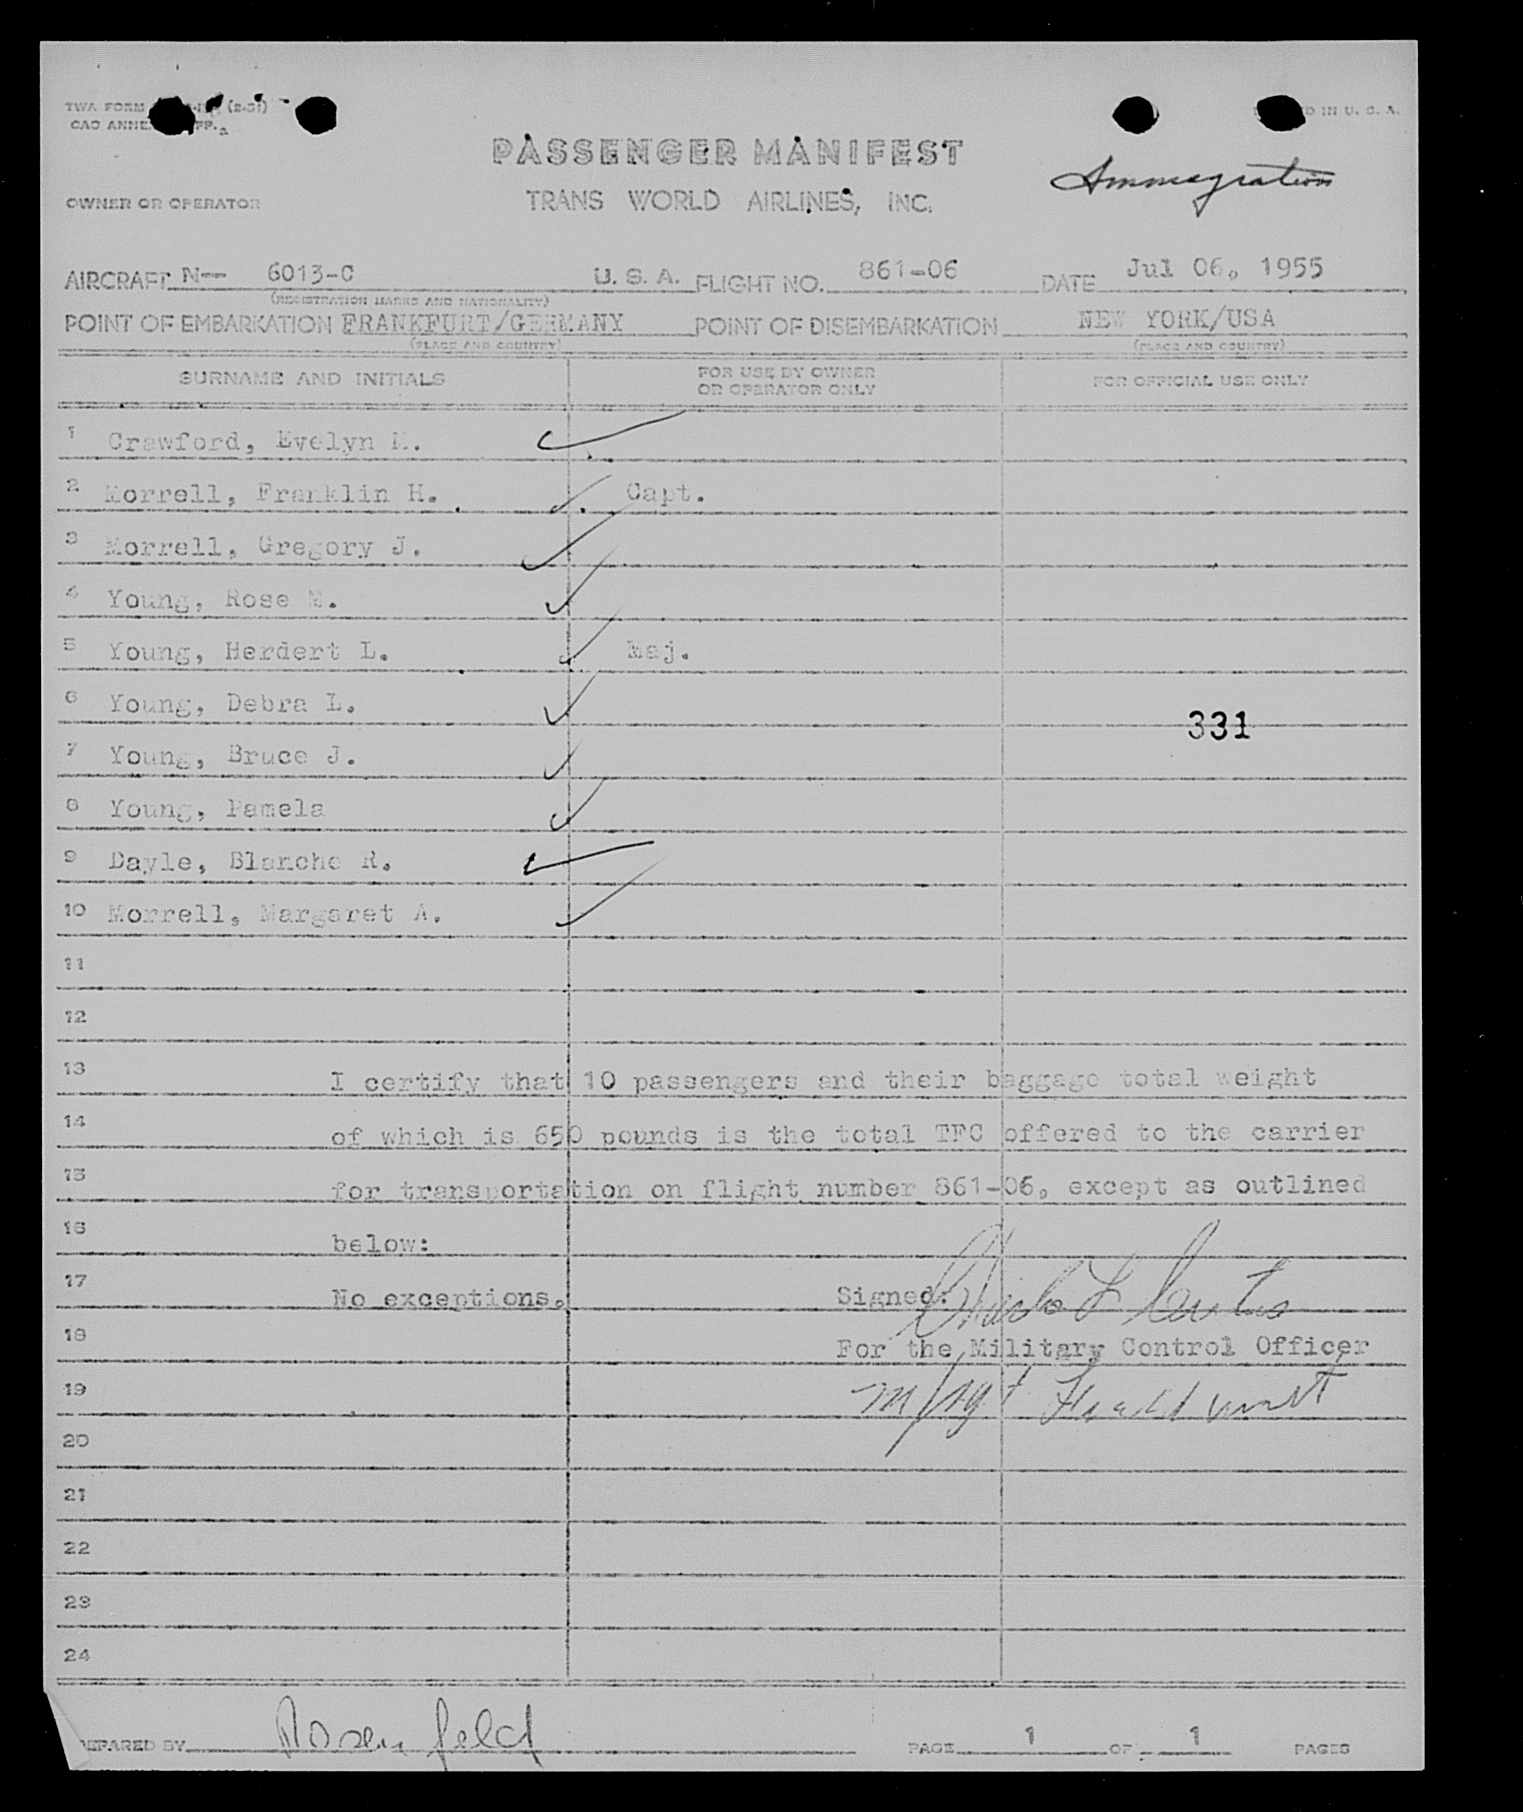 TWA FORM (2-51)
CAO ANNEX
IN U. S. A.
PASSENGER MANIFEST
Immegration
OWNER OR OPERATOR TRANS WORLD AIRLINES, INC.
AIRCRAFT N-- 6013-C U. S. A. FLIGHT NO. 861-06 DATE Jul 06, 1955
(REGISTRATION MARKS AND NATIONALITY)
POINT OF EMBARKATION FRANKFURT/GERMANY POINT OF DISEMBARKATION NEW YORK/USA
(PLACE AND COUNTRY) (PLACE AND COUNTRY)
SURNAME AND INITIALS FOR USE BY OWNER OR OPERATOR ONLY FOR OFFICIAL USE ONLY
1 Crawford, Evelyn M.
2 Morrell, Franklin H. Capt.
3 Morrell, Gregory J.
4 Young, Rose M.
5 Young, Herdert L. Maj.
6 Young, Debra L.
331
7 Young, Bruce J.
8 Young, Pamela
9 Dayle, Blanche R.
10 Morrell, Margaret A.
11
12
13 I certify that 10 passengers and their baggage total weight
14 of which is 650 pounds is the total TFC offered to the carrier
15 for transportation on flight number 861-06, except as outlined
16 below:
17 No exceptions. Signed:
18 For the Military Control Officer
19 M/Sgt
20
21
22
23
24
PREPARED BY Rosenfeld PAGE 1 OF 1 PAGES